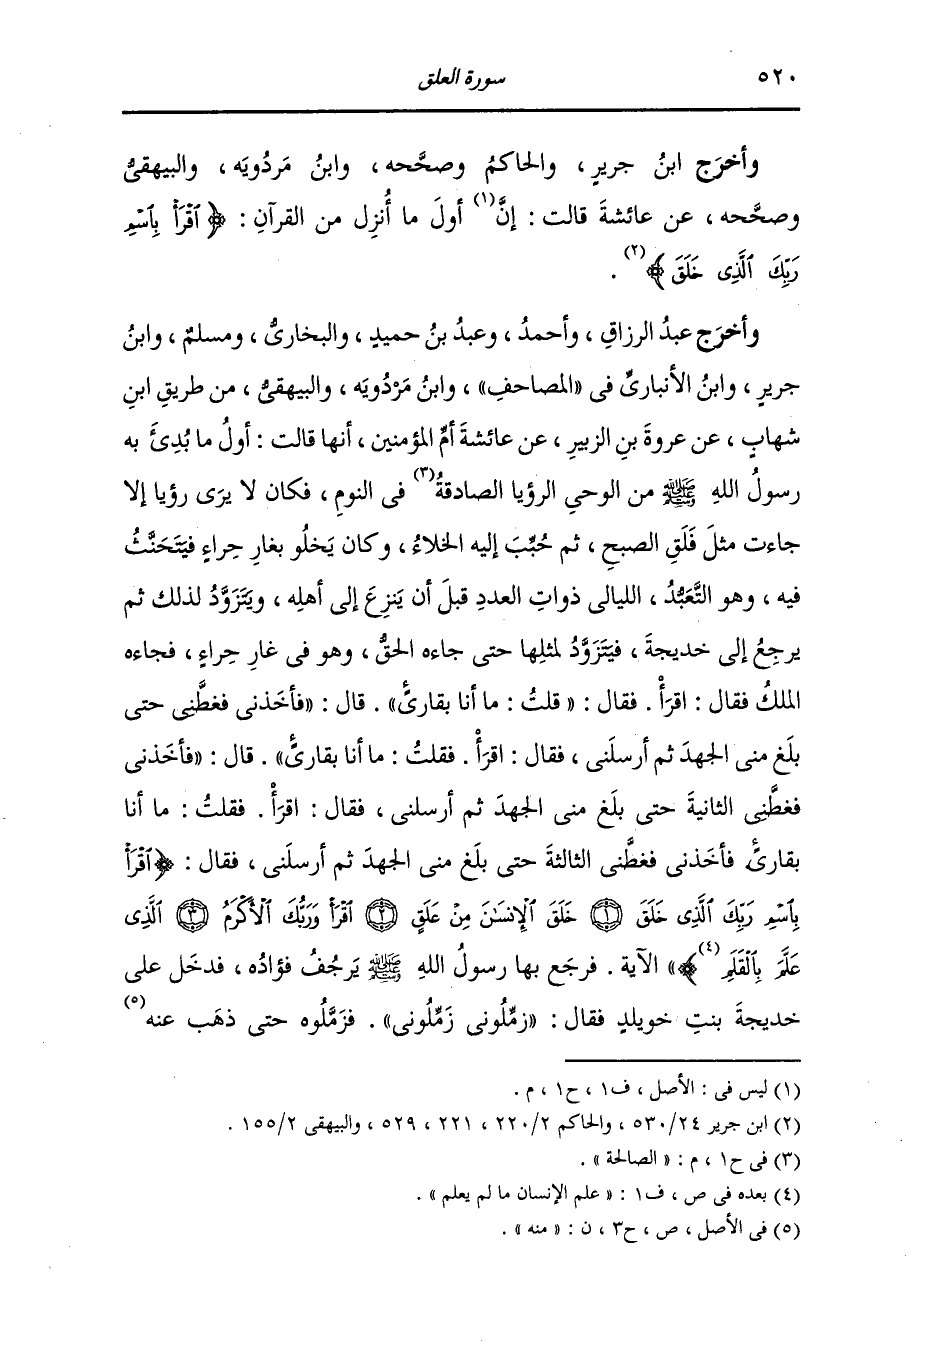 ٥٢٠ سورة العلق
وأخرَج ابنُ جريرٍ ، والحاكمُ وصحَّحه ، وابنُ مَردُويَه ، والبيهقىُّ
وصحَّحه ، عن عائشةَ قالت : إنَّ(١) أولَ ما أُنزِل من القرآنِ : ﴿ ٱقْرَأْ بِٱسْمِ
رَبِّكَ ٱلَّذِى خَلَقَ ﴾(٢) .
وأخرَج عبدُ الرزاقِ ، وأحمدُ ، وعبدُ بنُ حميدٍ ، والبخارىُّ ، ومسلمٌ ، وابنُ
جريرٍ ، وابنُ الأنبارىِّ فى «المصاحفِ» ، وابنُ مَرْدُويَه ، والبيهقىُّ ، من طريقِ ابنِ
شهابٍ ، عن عروةَ بنِ الزبيرِ ، عن عائشةَ أمِّ المؤمنين ، أنها قالت : أولُ ما بُدِئَ به
رسولُ اللهِ ﷺ من الوحىِ الرؤيا الصادقةُ(٣) فى النومِ ، فكان لا يرَى رؤيا إلا
جاءت مثلَ فَلَقِ الصبحِ ، ثم حُبِّبَ إليه الخلاءُ ، وكان يَخلُو بغارِ حِراءٍ فيَتَحَنَّثُ
فيه ، وهو التَّعَبُّدُ ، الليالى ذواتِ العددِ قبلَ أن يَنزِعَ إلى أهلِه ، ويَتَزَوَّدُ لذلك ثم
يرجِعُ إلى خديجةَ ، فيَتَزَوَّدُ لمثلِها حتى جاءه الحقُّ ، وهو فى غارِ حِراءٍ ، فجاءه
الملكُ فقال : اقرَأْ . فقال : « قلتُ : ما أنا بقارئٍ» . قال : «فأخَذنى فغطَّنِى حتى
بلَغ منى الجهدَ ثم أرسلَنى ، فقال : اقرَأْ . فقلتُ : ما أنا بقارئٍ» . قال : «فأخَذنى
فغطَّنِى الثانيةَ حتى بلَغ منى الجهدَ ثم أرسلنى ، فقال : اقرَأْ . فقلتُ : ما أنا
بقارئٍ . فأخَذنى فغطَّنى الثالثةَ حتى بلَغ منى الجهدَ ثم أرسلَنى ، فقال : ﴿ٱقْرَأْ
بِٱسْمِ رَبِّكَ ٱلَّذِى خَلَقَ ۝١ خَلَقَ ٱلْإِنسَٰنَ مِنْ عَلَقٍ ۝٢ ٱقْرَأْ وَرَبُّكَ ٱلْأَكْرَمُ ۝٣ ٱلَّذِى
عَلَّمَ بِٱلْقَلَمِ(٤)﴾» الآية . فرجَع بها رسولُ اللهِ ﷺ يَرجُفُ فؤادُه ، فدخَل على
خديجةَ بنتِ خويلدٍ فقال : «زمِّلُونى زَمِّلُونى» . فزَمَّلُوه حتى ذهَب عنه(٥)
(١) ليس فى : الأصل ، ف١ ، ح١ ، م .
(٢) ابن جرير ٥٣٠/٢٤ ، والحاكم ٢٢٠/٢ ، ٢٢١ ، ٥٢٩ ، والبيهقى ١٥٥/٢ .
(٣) فى ح١ ، م : « الصالحة » .
(٤) بعده فى ص ، ف١ : « علم الإنسان ما لم يعلم » .
(٥) فى الأصل ، ص ، ح٣ ، ن : « منه » .